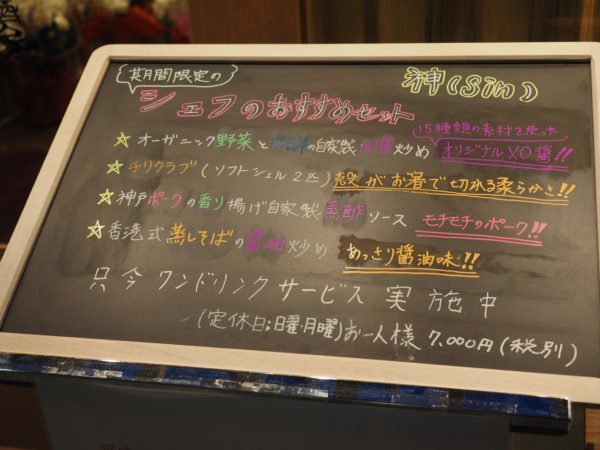 期間限定の
神(Sin)
シェフのおすすめセット
15種類の素材を使った
☆オーガニック野菜と海鮮の自家製XO醤炒め オリジナルXO醤!!
☆チリクラブ(ソフトシェル2匹) 殻がお箸で切れる柔らかさ!!
☆神戸ポークの香り揚げ自家製黒酢ソース モチモチのポーク!!
☆香港式蒸しそばの醤油炒め あっさり醤油味!!
只今ワンドリンクサービス実施中
(定休日;日曜・月曜)お一人様 7,000円(税別)